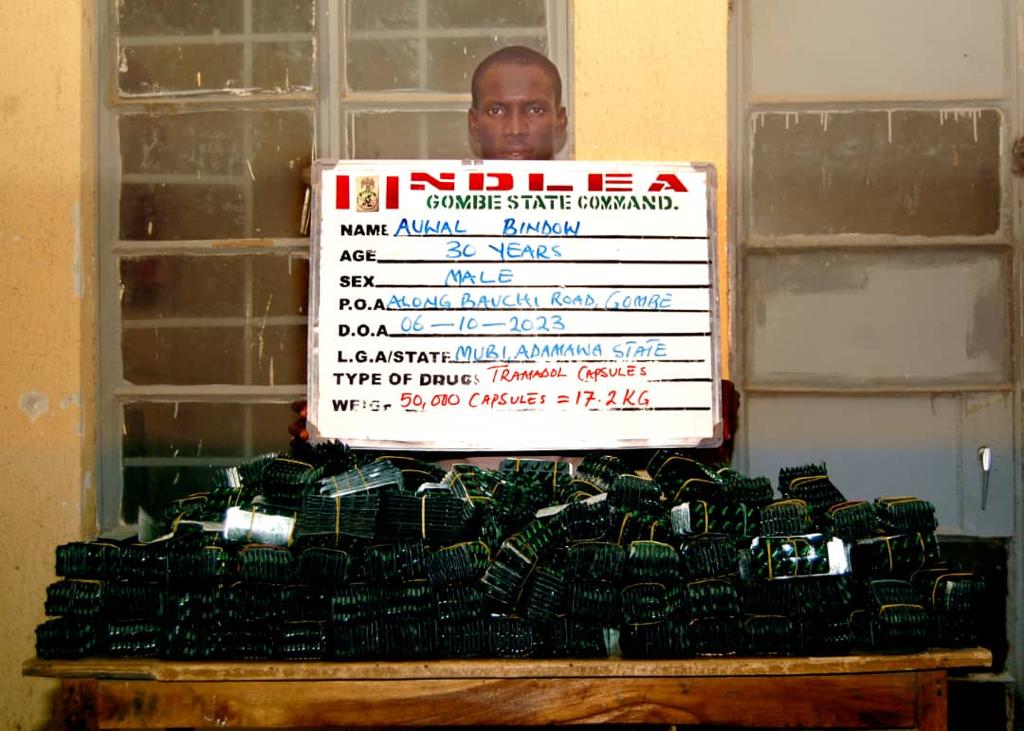 NDLEA
GOMBE STATE COMMAND.
NAME AUWAL BINDOW
AGE 30 YEARS
SEX MALE
P.O.A ALONG BAUCHI ROAD, GOMBE
D.O.A 06-10-2023
L.G.A/STATE MUBI, ADAMAWA STATE
TYPE OF DRUGS TRAMADOL CAPSULES
50,000 CAPSULES = 17.2 KG